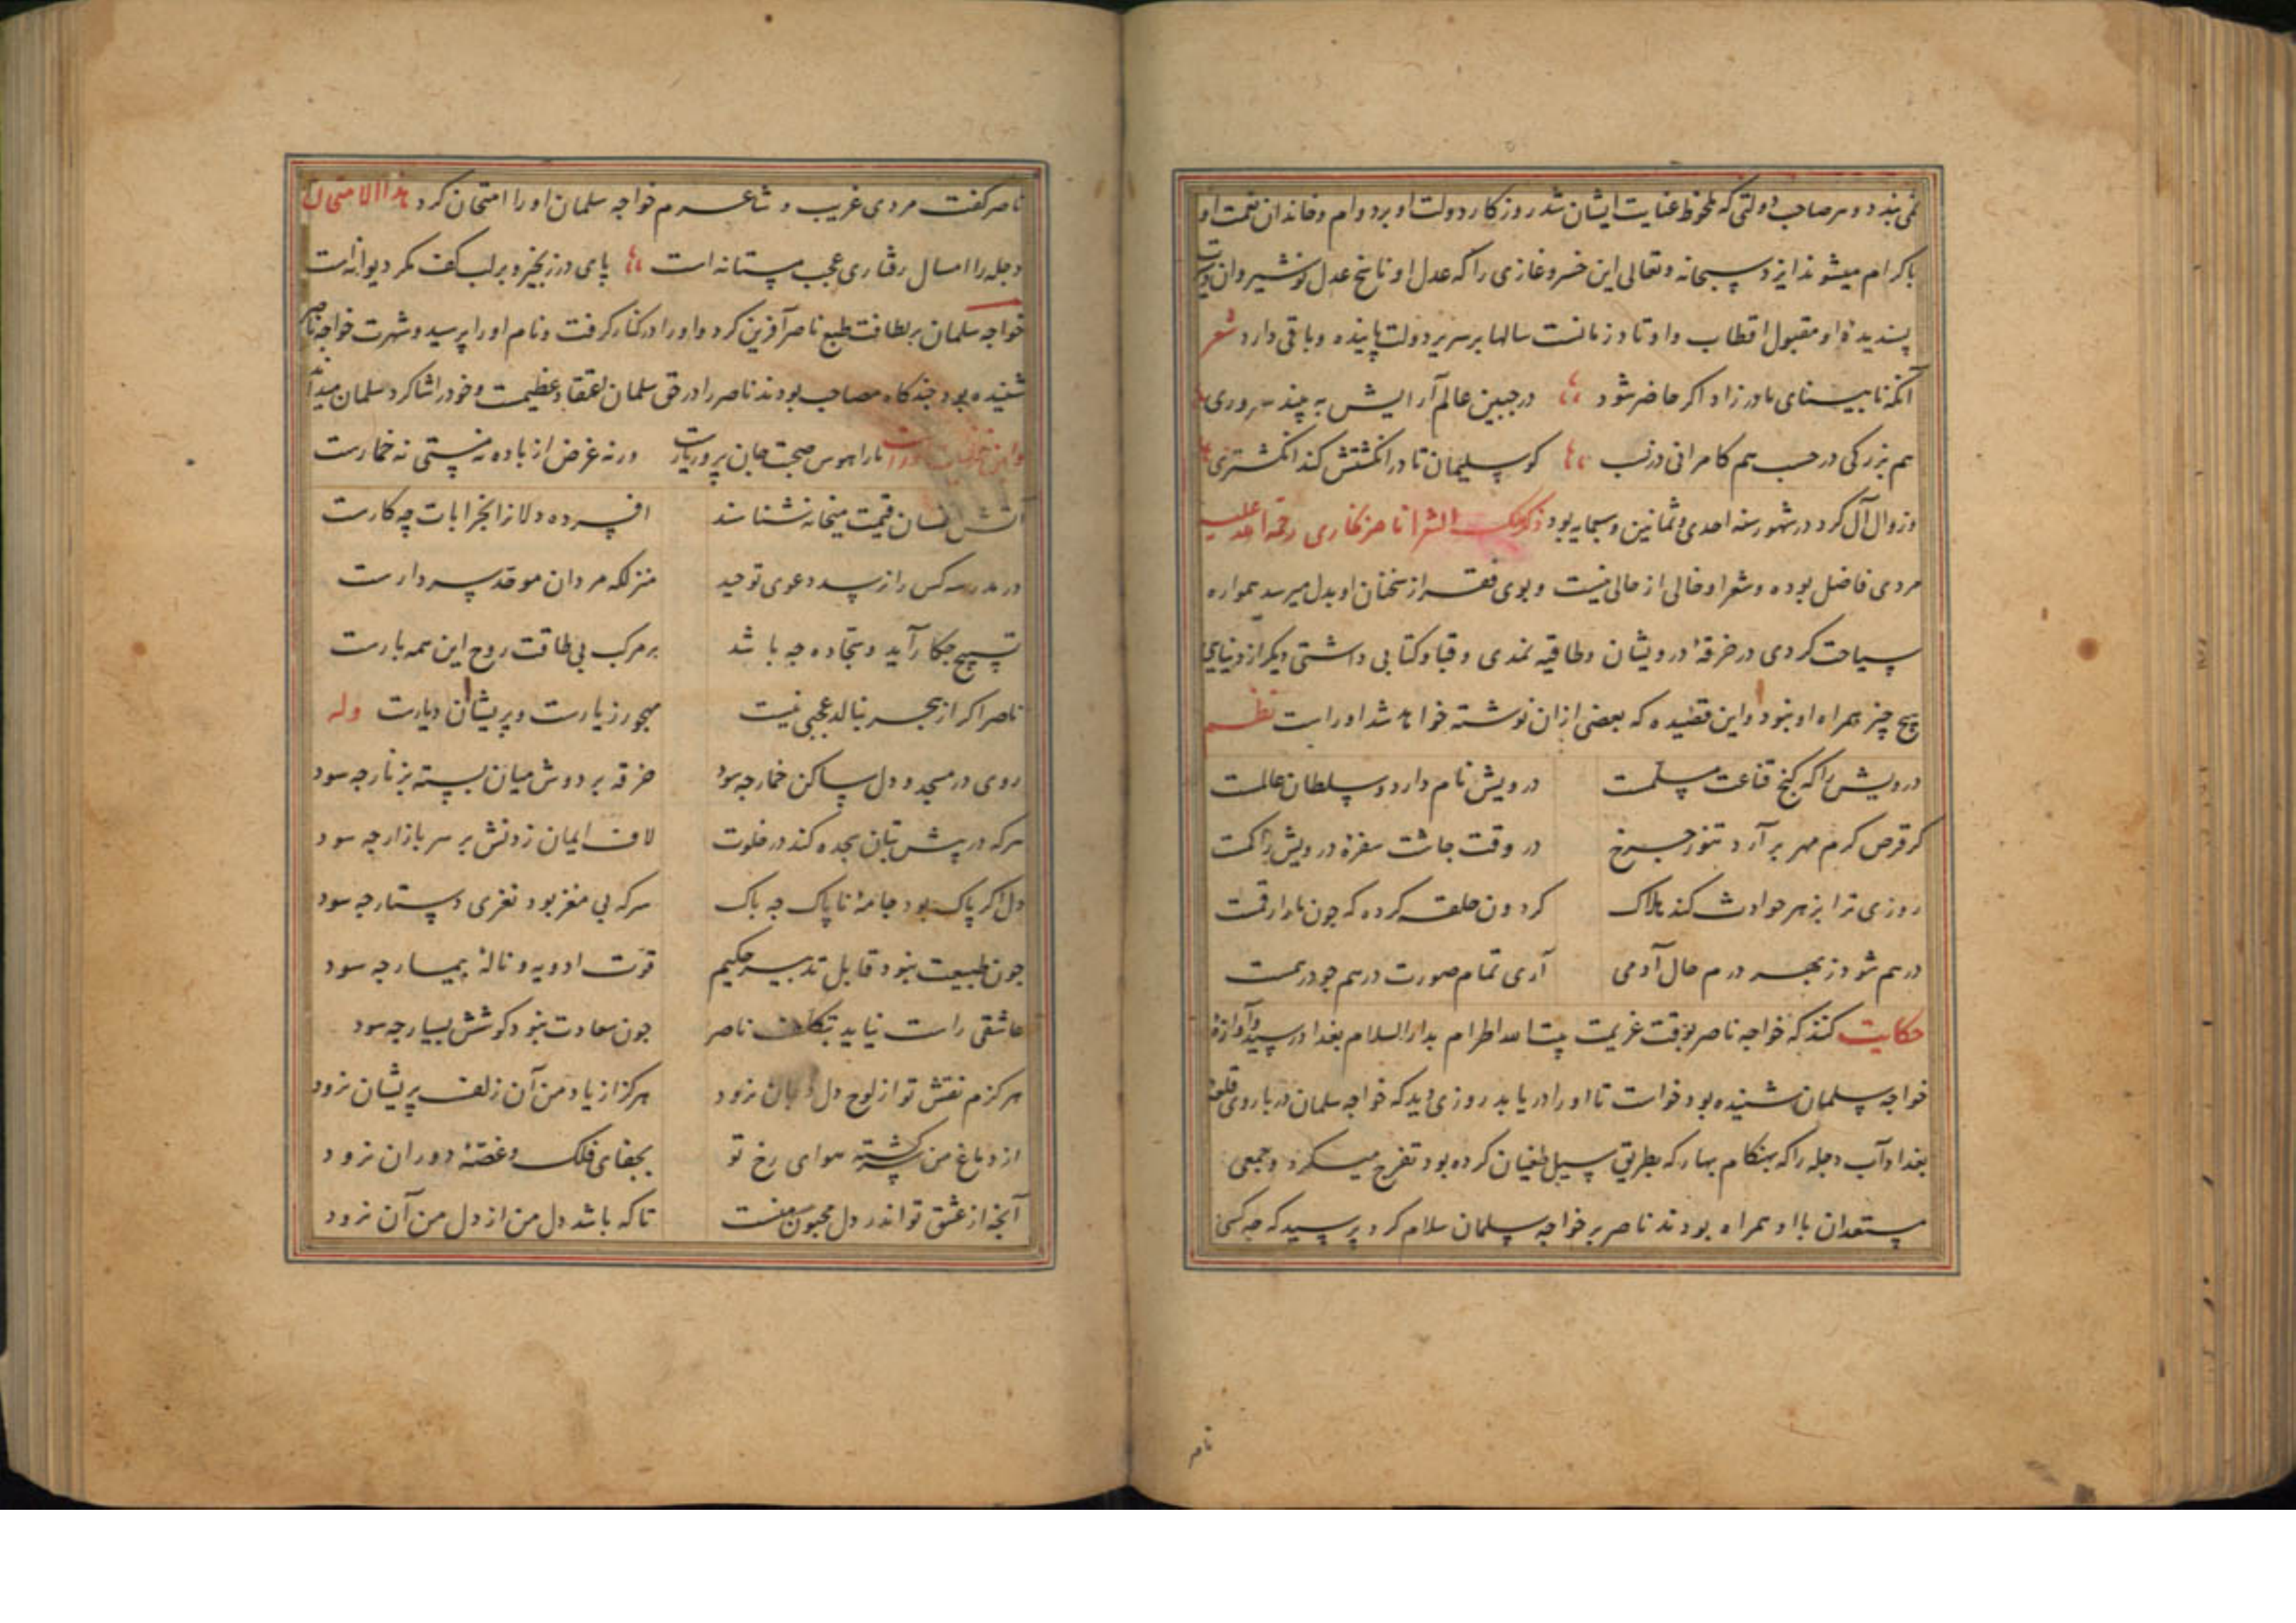 نمی بندد و هر صاحب دولتی که ملحوظ عنایت ایشان شد روز کار دولت او بر دوام و خاندان نعمت او
باکرام میشوند ایزد سبحانه و تعالی این خسرو غازی را که عدل او ناسخ عدل نوشیروان
پسندیده او مقبول اقطاب و اوتاد زمانست سالها بر سریر دولت پاینده و باقی دارد شعر
آنکه نابینای مادر زاد اکر حاضر شود در جبین عالم آرایش به بیند سروری
هم بزرکی در حسب هم کامرانی در نسب کو سلیمان تا در انکشتش کند انکشتری
وزوال آل کرد در شهور سنه احدی و ثمانین و سبعمایه بود ذکر ملک الشعرا ناصر بخاری رحمة الله علیه
مردی فاضل بوده و شعر او خالی از حالی نیست و بوی فقر از سخنان او بدل میرسد همواره
سیاحت کردی در خرقهٔ درویشان و طاقیه نمدی و قبا و کتابی داشتی دیکر از دنیاوی
هیچ چیز همراه او نبود و این قصیده که بعضی ازان نوشته خواهد شد اوراست نظم
درویش را که کنج قناعت مسلمست درویش نام دارد و سلطان عالمست
کر قرص کرم مهر بر آرد تنور چرخ در وقت چاشت سفرهٔ درویش را کمست
روزی ترا بزهر حوادث کند هلاک کردون حلقه کرده که چون مار ارقمست
درهم شود ز بهر درم حال آدمی آری تمام صورت درهم چو درهمست
حکایت کنند که خواجه ناصر بوقت عزیمت بیت الله الحرام بدار السلام بغداد رسید و آوازهٔ
خواجه سلمان شنیده بود خواست تا او را دریابد روزی دید که خواجه سلمان در باروی قلعهٔ
بغداد آب دجله را که بهنکام بهار که بطریق سیل طغیان کرده بود تفرج میکرد و جمعی
مستعدان با او همراه بودند ناصر بر خواجه سلمان سلام کرد پرسید که چه کسی
ناصر
ناصر کفت مردی غریب و شاعرم خواجه سلمان او را امتحان کرد هذا الامتحان
دجله را امسال رفتاری عجب مستانه است پای در زنجیر و بر لب کف مکر دیوانه است
خواجه سلمان بر لطافت طبع ناصر آفرین کرد و او را در کنار کرفت و نام او را پرسید و شهرت خواجه ناصر
شنیده بود چند کاه مصاحب بودند ناصر را در حق سلمان اعتقاد عظیمست و خود را شاکرد سلمان میداند
مارا هوس صحبت جان پرور یارست ورنه غرض از باده نه مستی نه خمارست
آتش نفسان قیمت میخانه شناسند افسرده دلانرا بخرابات چه کارست
در مدرسه کس را نرسد دعوی توحید منزلکه مردان موحد سر دارست
تسبیح چکار آید و سجاده چه باشد بر مرکب بی طاقت روح این همه بارست
ناصر اکر از هجر بنالد عجبی نیست مهجور ز یارست و پریشان دیارست وله
روی در مسجد و دل ساکن خمار چه سود خرقه بر دوش میان بسته بزنار چه سود
هرکه در پیش بتان سجده کند در خلوت لاف ایمان زدنش بر سر بازار چه سود
دل اکر پاک بود جامهٔ ناپاک چه باک سر که بی مغز بود نغزی دستار چه سود
چون طبیعت نبود قابل تدبیر حکیم قوت ادویه و نالهٔ بیمار چه سود
عاشقی راست نیاید بتکلف ناصر چون سعادت نبود کوشش بسیار چه سود
هرکزم نقش تو از لوح دل و جان نرود هرکز از یاد من آن زلف پریشان نرود
از دماغ من سرکشته هوای رخ تو بجفای فلک و غصهٔ دوران نرود
آنچه از عشق تو اندر دل مجنون منست تا که باشد دل من از دل من آن نرود